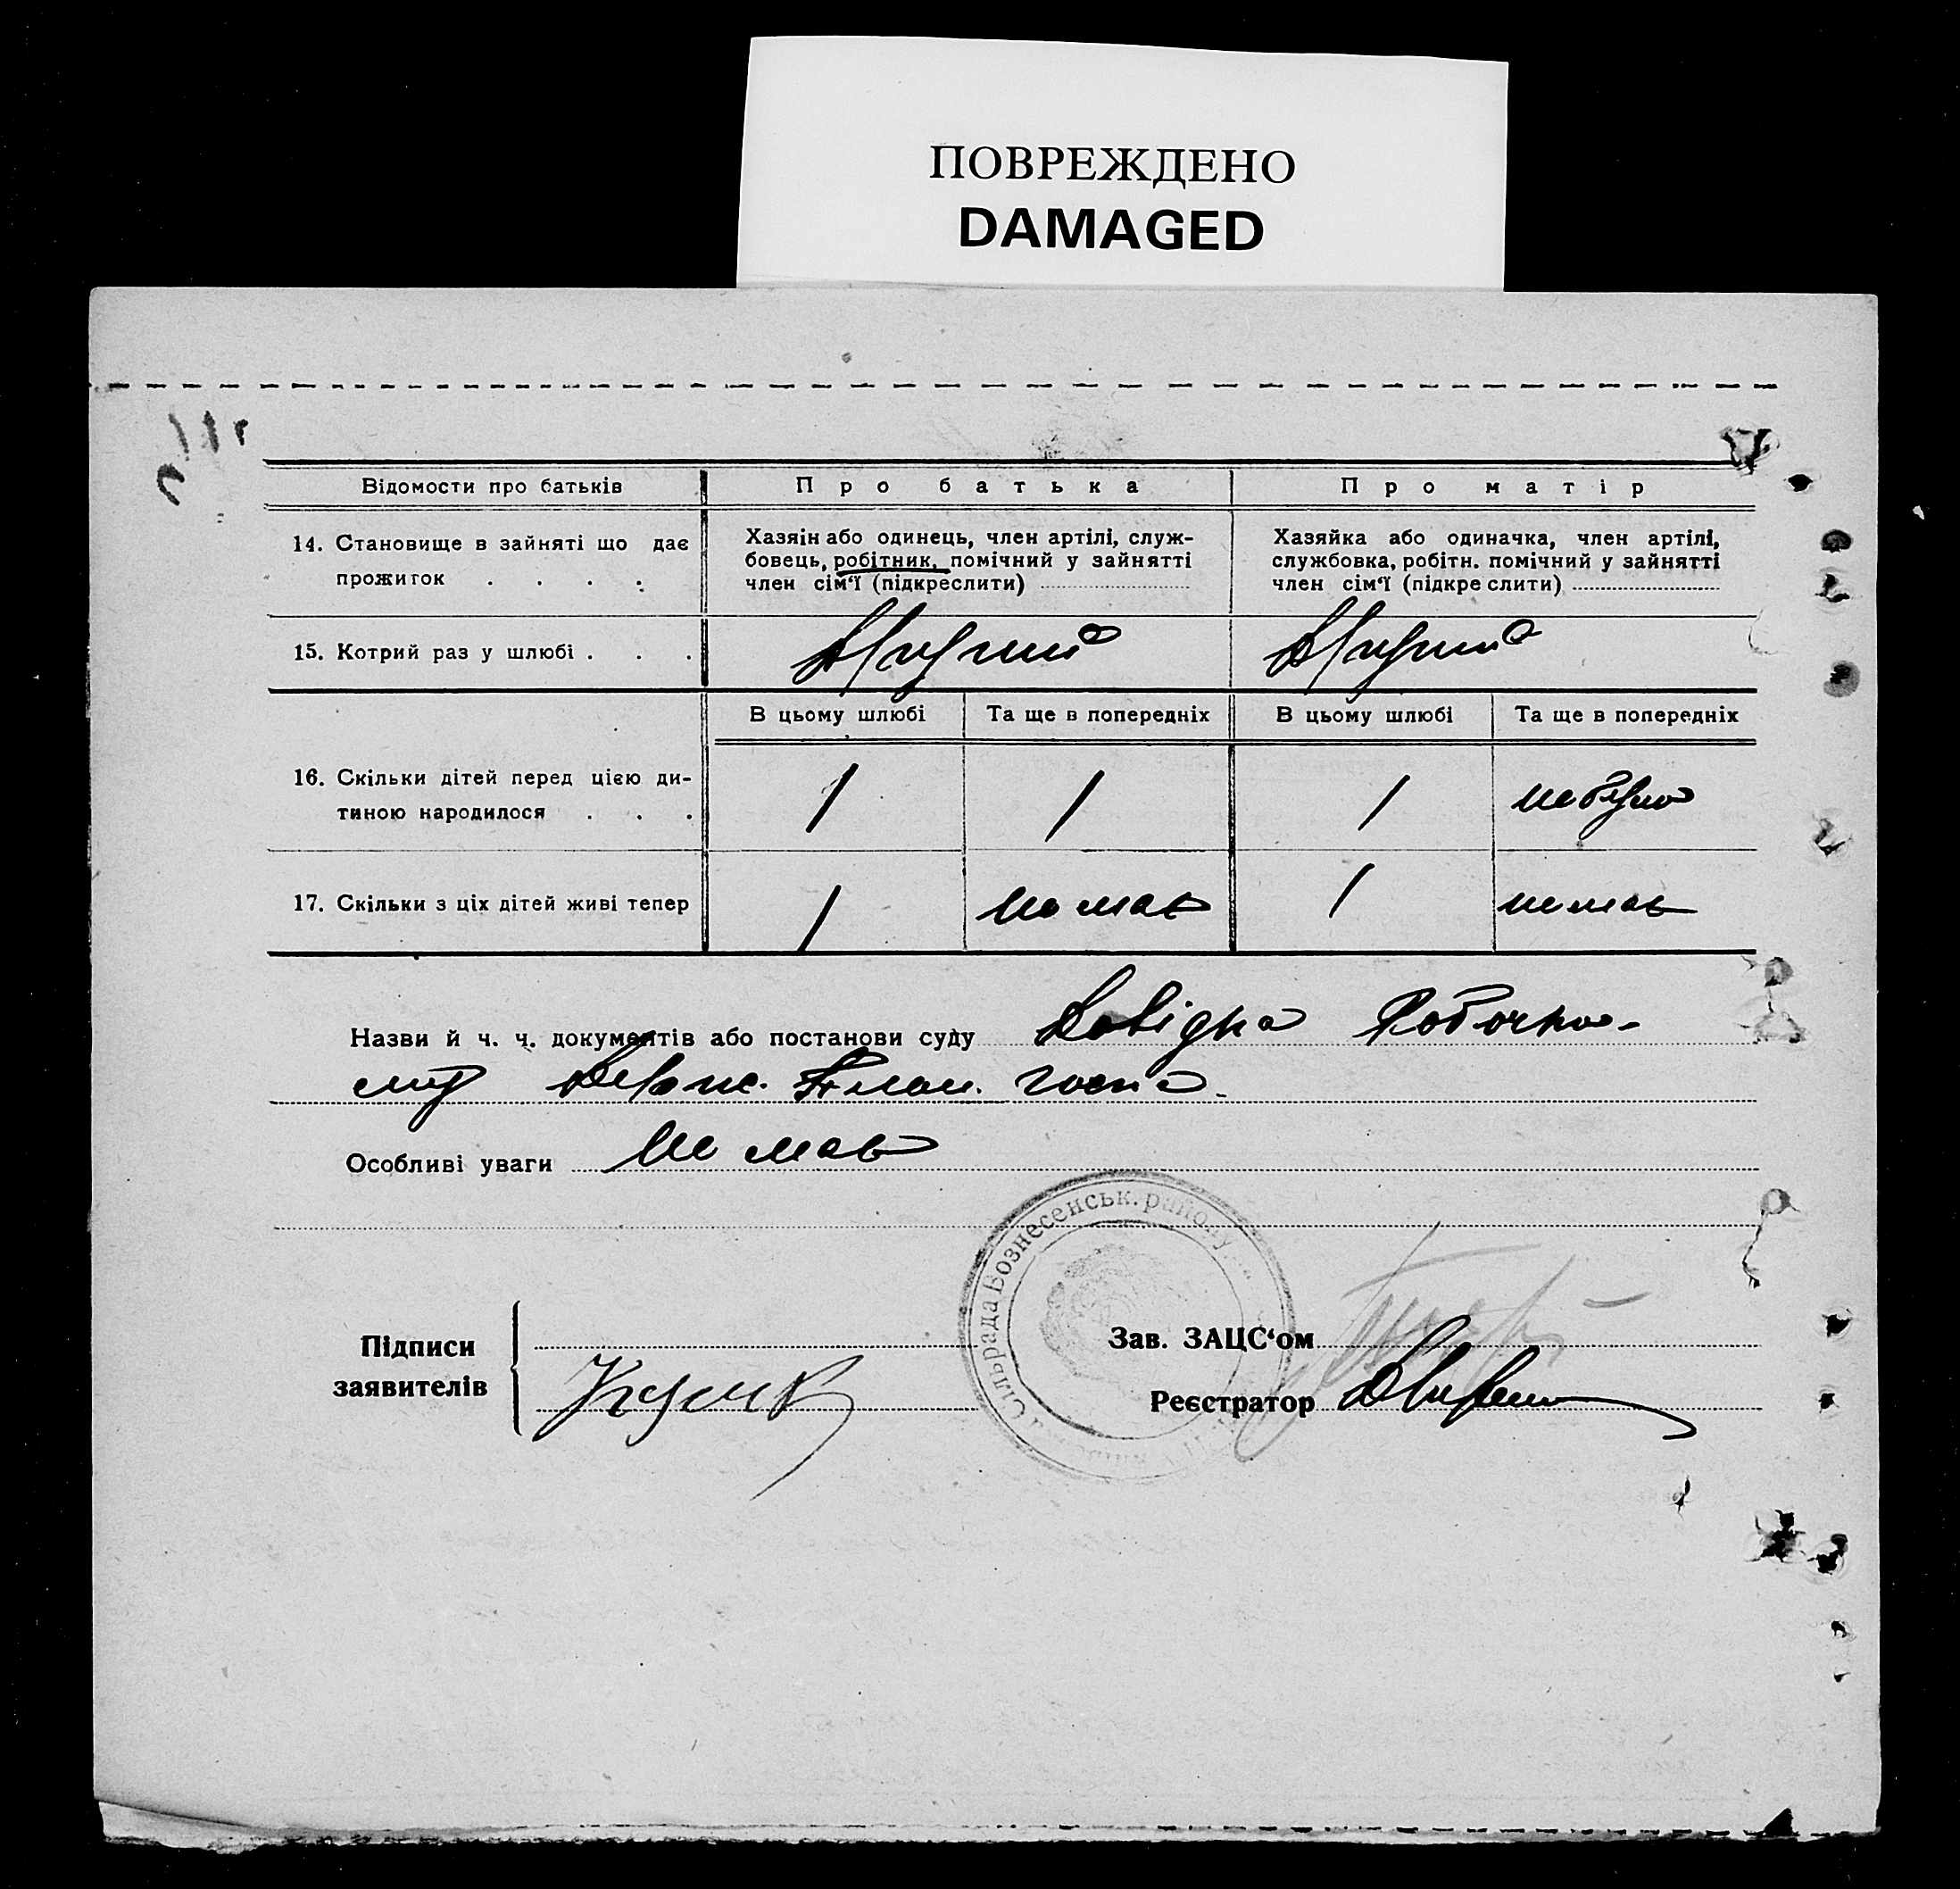 ПОВРЕЖДЕНО
DAMAGED
Відомости про батьків
Про батька
Про матір
14. Становище в зайняті що дає
прожиток . . . .
Хазяін або одинець, член артілі, служ-
бовець, робітник, помічний у зайнятті
член сім‘ї (підкреслити)
Хазяйка або одиначка, член артілі,
службовка, робітн. помічний у зайнятті
член сім‘ї (підкреслити)
15. Котрий раз у шлюбі . . .
Другий
Другий
В цьому шлюбі
Та ще в попередніх
В цьому шлюбі
Та ще в попередніх
16. Скільки дітей перед цією ди-
тиною народилося . . .
1
1
1
не було
17. Скільки з ціх дітей живі тепер
1
не має
1
не має
Назви й ч. ч. документів або постанови суду Довідка
Особливі уваги не має
Сільрада Вознесенськ. району
Підписи
заявителів
Зав. ЗАЦС‘ом
Реєстратор